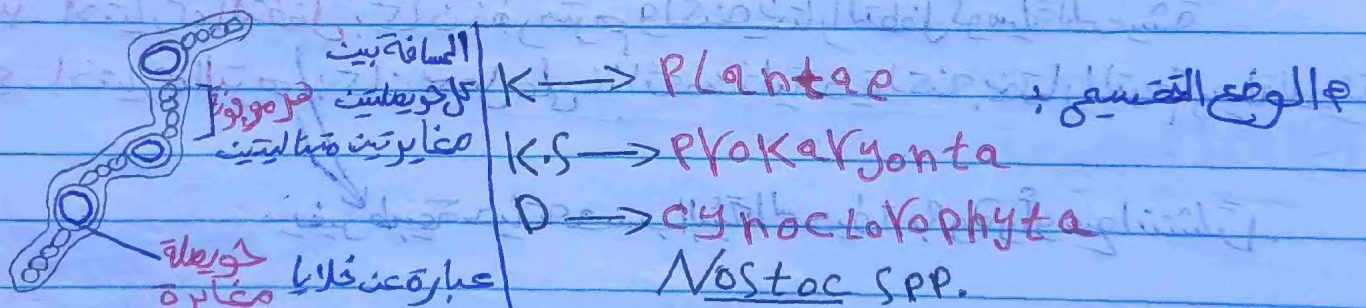 * الوضع التقسيمي :
K → Plantae
K.S → Prokaryonta
D → cynoclorophyta
Nostoc spp.
المسافة بين
كل حويصلتين هرموجونة
مغايرتين متتاليتين
حويصلة
مغايرة
عبارة عن خلايا